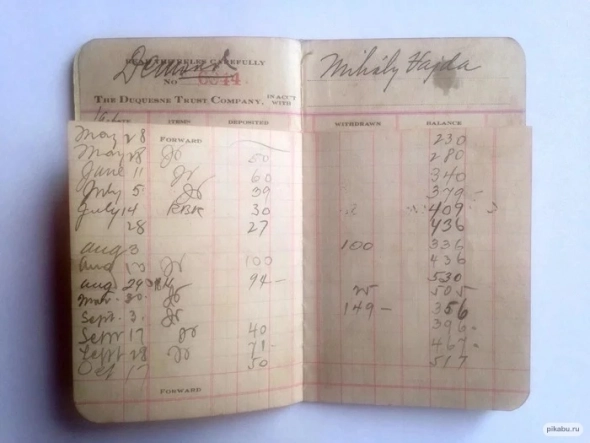 Demand
READ THE RULES CAREFULLY
No 6344.
THE DUQUESNE TRUST COMPANY, IN ACC'T WITH
Mihály Hajda
ITEMS DEPOSITED WITHDRAWN BALANCE
May 28 FORWARD 230
May 28 50 280
June 11 60 340
July 5 39 379-
July 14 RBR 30 409
28 27 436
Aug 3 100 336
Aug 100 436
Aug 29 94- 530
30 25 505
Sept. 3. 149- 356
Sept 17 40 396-
Sept 28 71- 467-
Oct 17 50 517
FORWARD
pikabu.ru